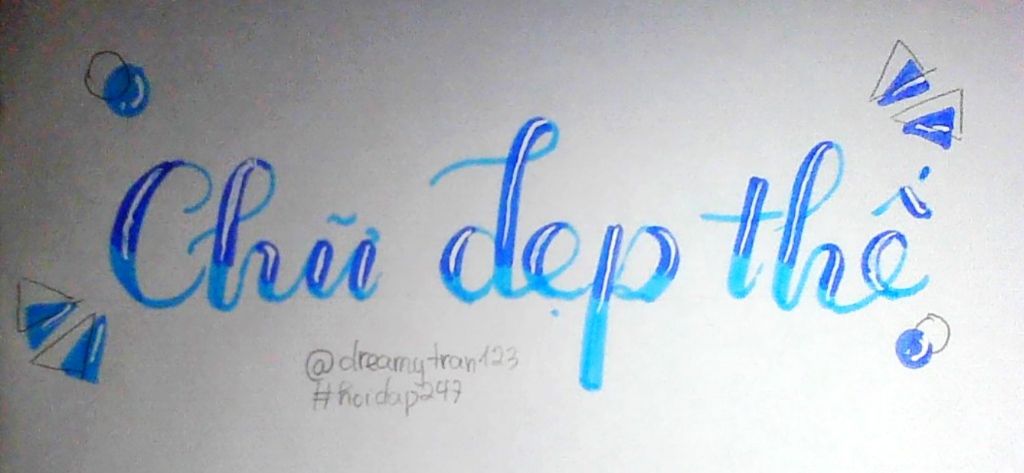 Chữ đẹp thế
@dreamytran123
#hoidap247